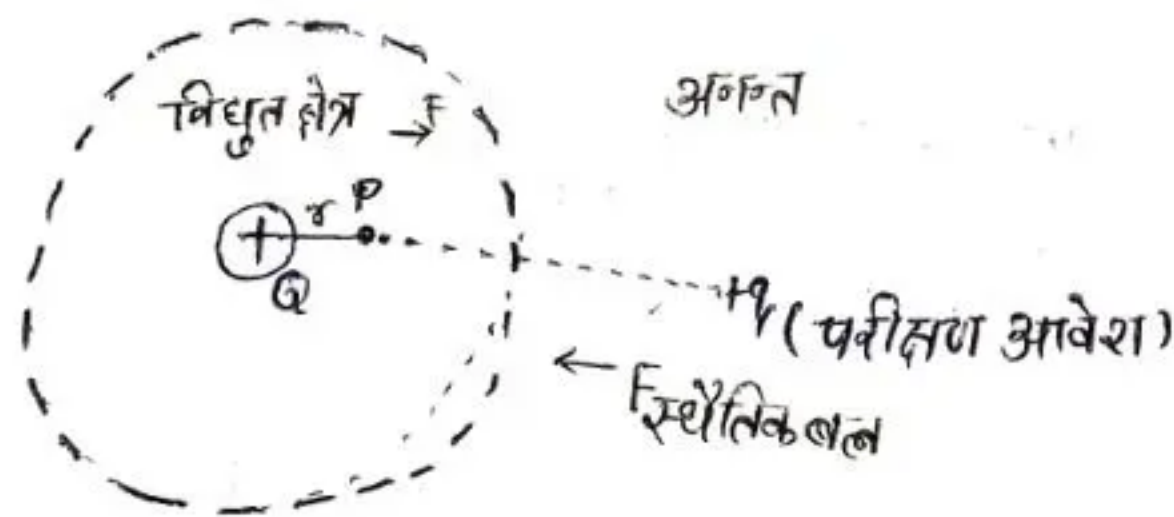 विद्युत क्षेत्र → F
अनन्त
+
r P
Q
+q (परीक्षण आवेश)
← F स्थैतिक बल